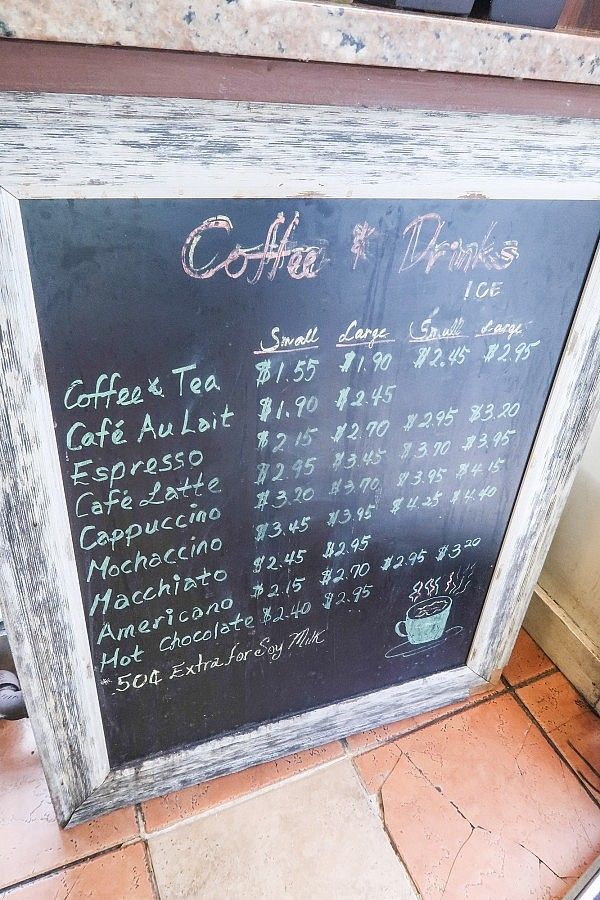 Coffee & Drinks
ICE
Small Large Small Large
Coffee & Tea $1.55 $1.90 $2.45 $2.95
Café Au Lait $1.90 $2.45
Espresso $2.15 $2.70 $2.95 $3.20
Café Latte $2.95 $3.45 $3.70 $3.95
Cappuccino $3.20 $3.70 $3.95 $4.15
Mochaccino $3.45 $3.95 $4.25 $4.40
Macchiato $2.45 $2.95
Americano $2.15 $2.70 $2.95 $3.20
Hot Chocolate $2.40 $2.95
*50¢ Extra for Soy Milk